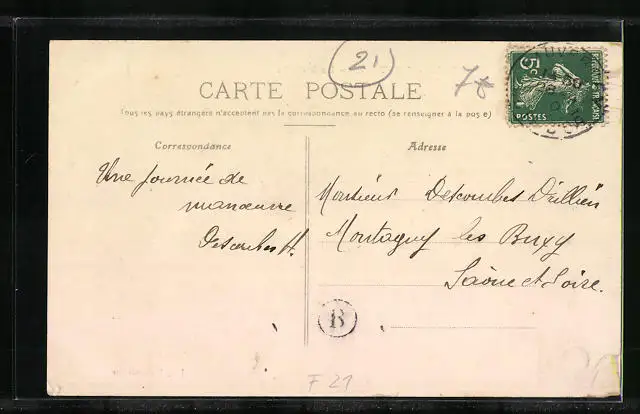 21
78
CARTE POSTALE
Tous les pays étrangers n'acceptent pas la correspondance au recto (se renseigner à la poste)
Correspondance
Adresse
5c
POSTES
Une journée de
manœuvre
Descombes H.
Monsieur Descombes
Montagny les Buxy
Saône et Loire.
B
F 21